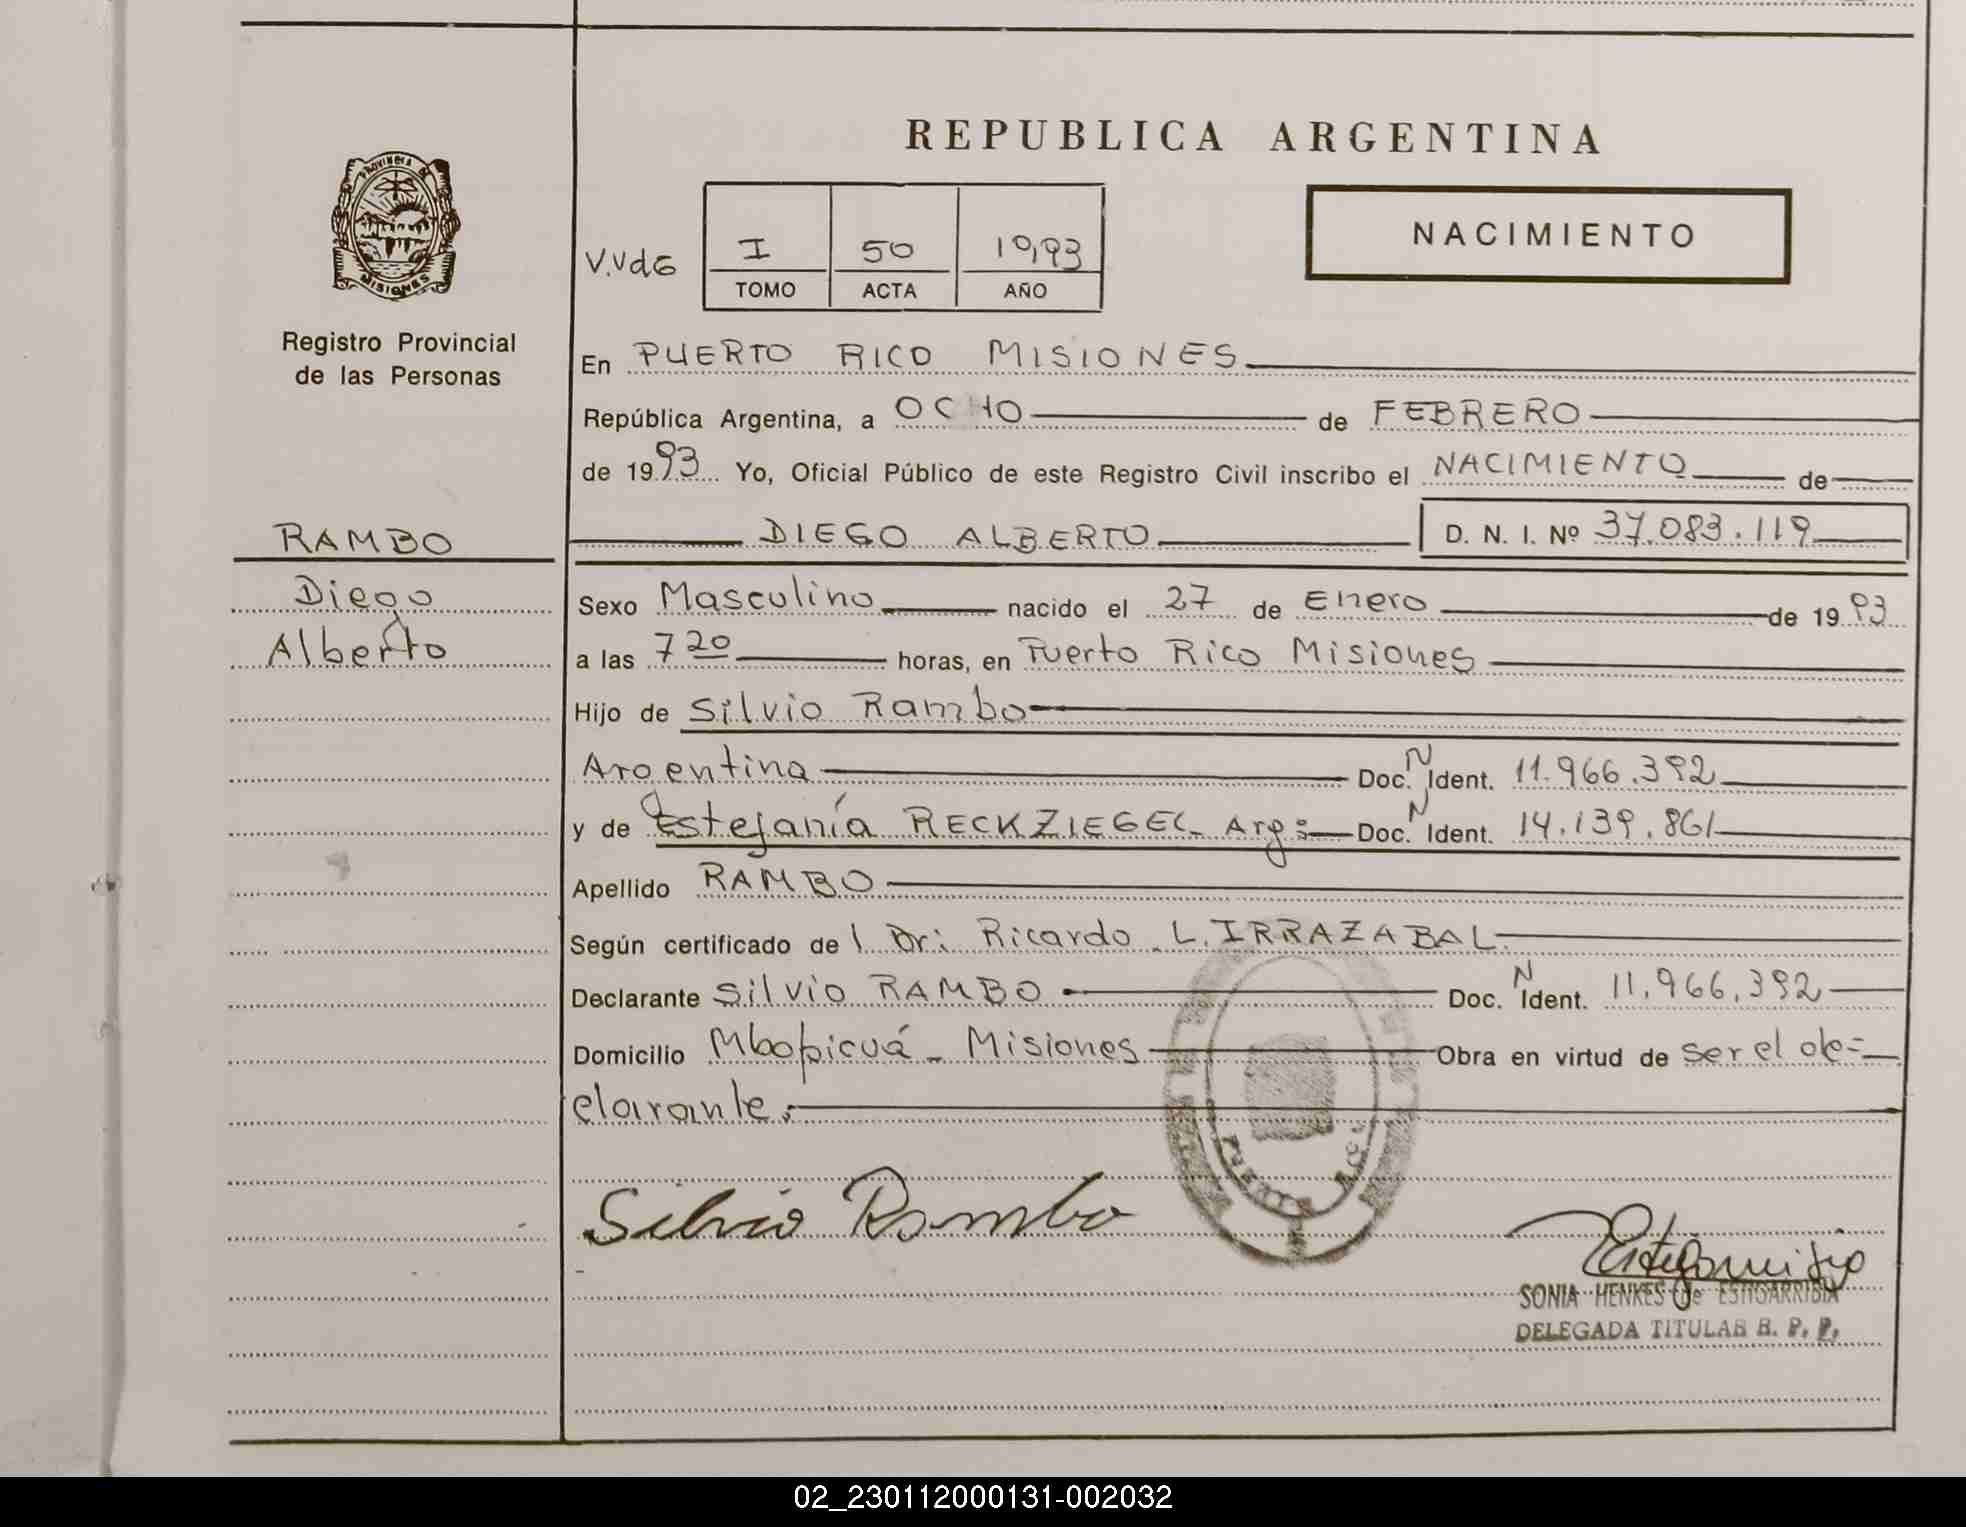 REPUBLICA ARGENTINA
PROVINCIA DE
MISIONES
Registro Provincial
de las Personas
V.VdG
I 50 19,93
TOMO ACTA AÑO
NACIMIENTO
En PUERTO RICO MISIONES
República Argentina, a OCHO de FEBRERO
de 1993 Yo, Oficial Público de este Registro Civil inscribo el NACIMIENTO de
DIEGO ALBERTO D. N. I. Nº 37.083.119
RAMBO
Diego
Alberto
Sexo Masculino nacido el 27 de Enero de 1993
a las 7 20 horas, en Puerto Rico Misiones
Hijo de Silvio Rambo
Argentina Doc. N Ident. 11.966.392
y de Estefanía RECKZIEGEL Arg: Doc. N Ident. 14.139.861
Apellido RAMBO
Según certificado de l Dr: Ricardo L. IRRAZABAL
Declarante Silvio RAMBO Doc. N Ident. 11.966.392
Domicilio Mbopicuá - Misiones Obra en virtud de ser el de=
clarante.
Silvio Rambo
SONIA HENKES de ESTIGARRIBIA
DELEGADA TITULAR R. P. P.
02_230112000131-002032